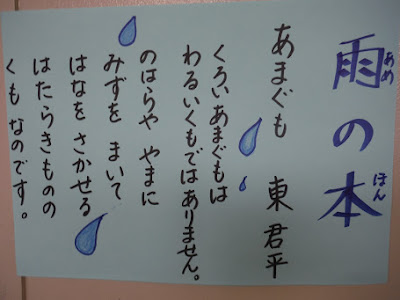 雨の本
あめ
ほん
あまぐも　東君平
くろいあまぐもは
わるいくもではありません。
のはらや やまに
みずを まいて
はなを さかせる
はたらきものの
くも なのです。